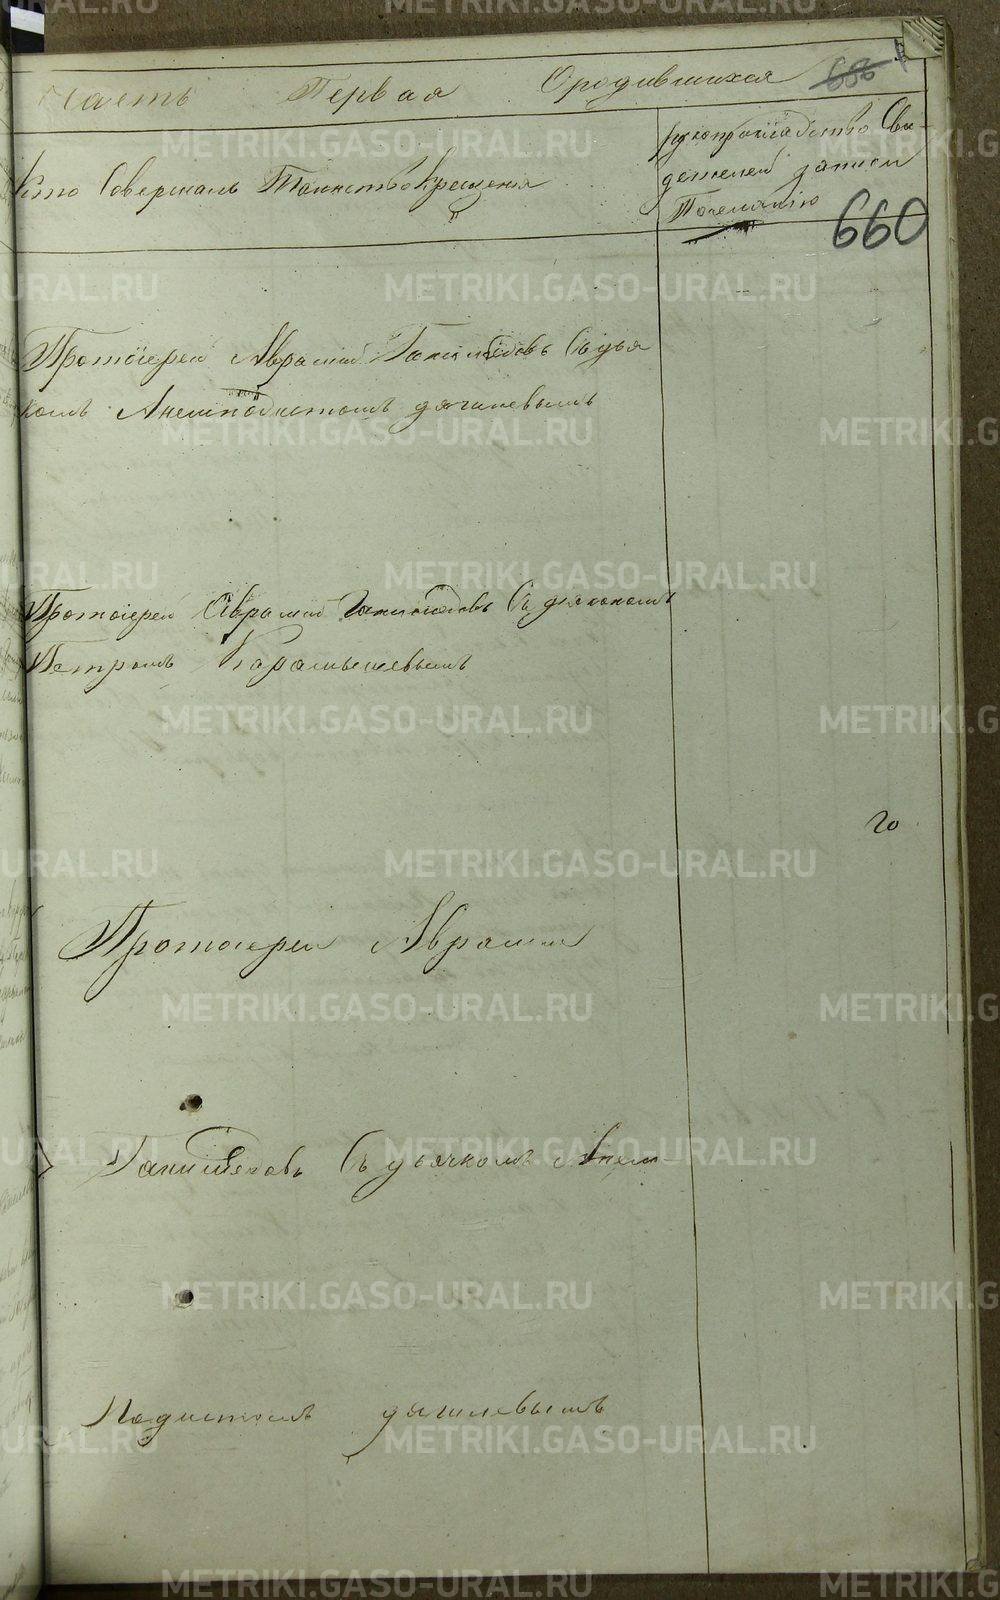 Часть Первая О родившихся 656
Кто Совершалъ Таинство Крещенія
рукоприкладство Сви-
детелей записи
По желанію
660
Протоіерей Аврамій Ганимедовъ Съ дья
комъ Анемподистомъ дягилевымъ
Протоіерей Аврамій Ганимедовъ Съ дьякономъ
Петромъ Карамышевымъ
20
Протоіерей Аврамій
Ганимедовъ Съ дьячкомъ Анем-
подистомъ дягилевымъ
METRIKI.GASO-URAL.RU